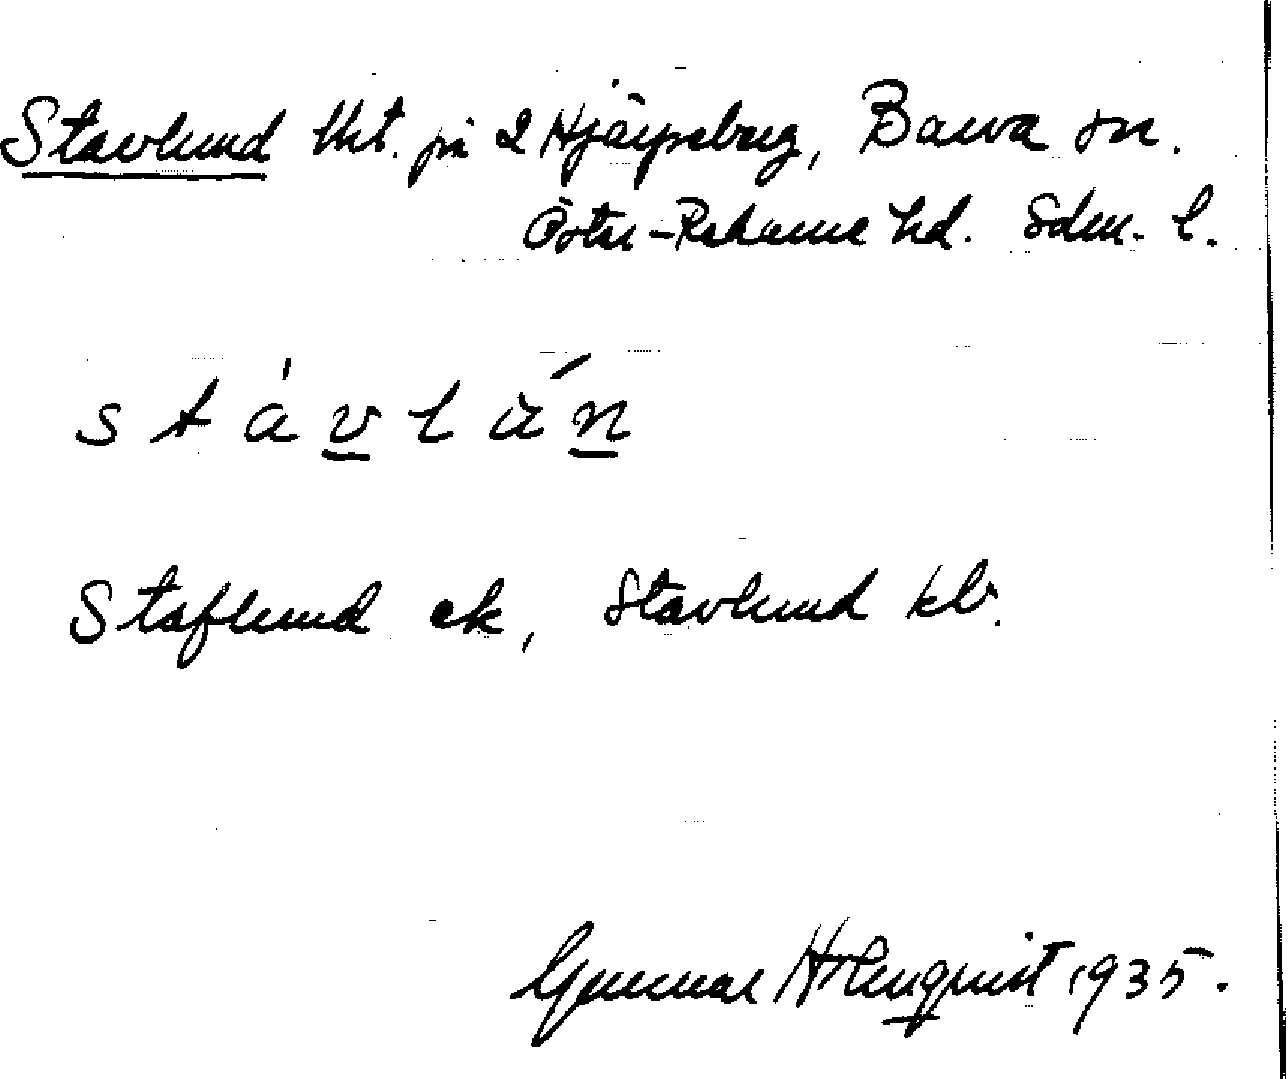 Stavlund tht. på 2 Hjälpsberg, Barva sn.
Öster-Rekarne hd. Sdm. l.
stávlún
Staflund ek, Stavlund kb.
Gunnar Holmqvist 1935.